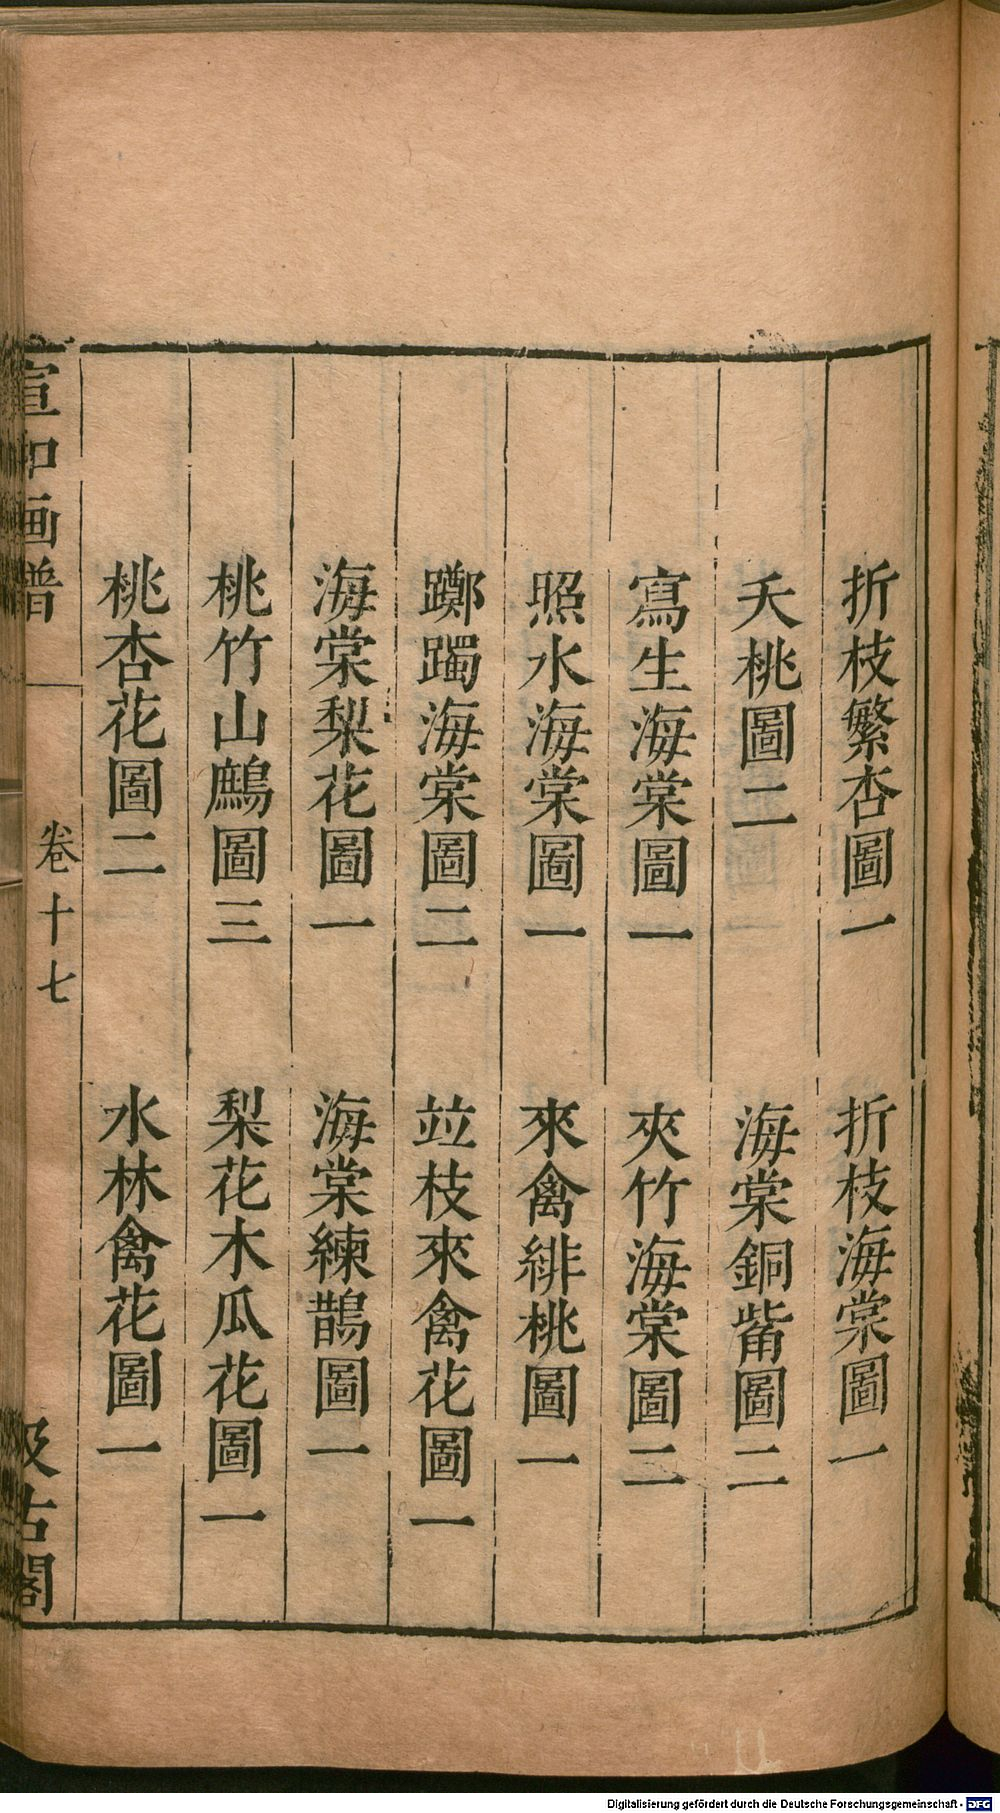 折枝繁杏圖一　折枝海棠圖一
夭桃圖二　海棠銅觜圖二
寫生海棠圖一　夾竹海棠圖二
照水海棠圖一　來禽緋桃圖一
躑躅海棠圖二　竝枝來禽花圖一
海棠梨花圖一　海棠練鵲圖一
桃竹山鷓圖三　梨花木瓜花圖一
桃杏花圖二　水林禽花圖一
宣和画譜　卷十七　汲古閣
Digitalisierung gefördert durch die Deutsche Forschungsgemeinschaft - DFG